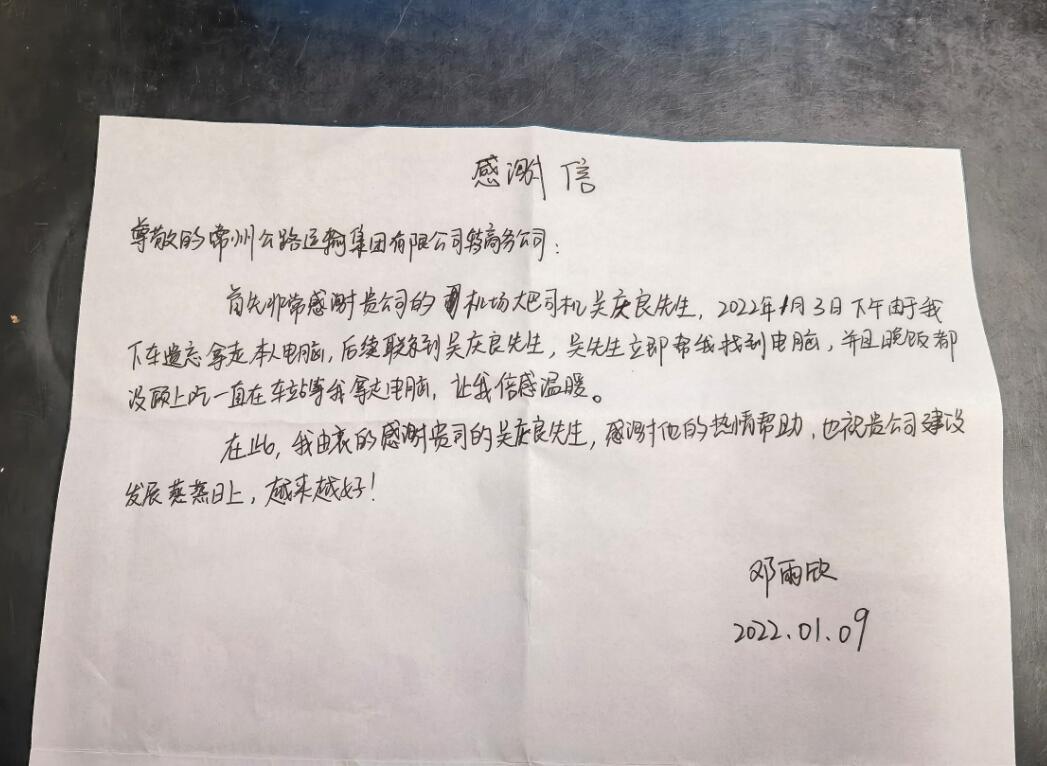 感谢信
尊敬的常州公路运输集团有限公司商务公司：
首先非常感谢贵公司的机场大巴司机吴庆良先生，2022年1月3日下午由于我
下车遗忘拿走本人电脑，后续联系到吴庆良先生，吴先生立即帮我找到电脑，并且晚饭都
没顾上吃一直在车站等我拿走电脑，让我倍感温暖。
在此，我由衷的感谢贵司的吴庆良先生，感谢他的热情帮助，也祝贵公司建设
发展蒸蒸日上，越来越好！
邓雨欣
2022.01.09